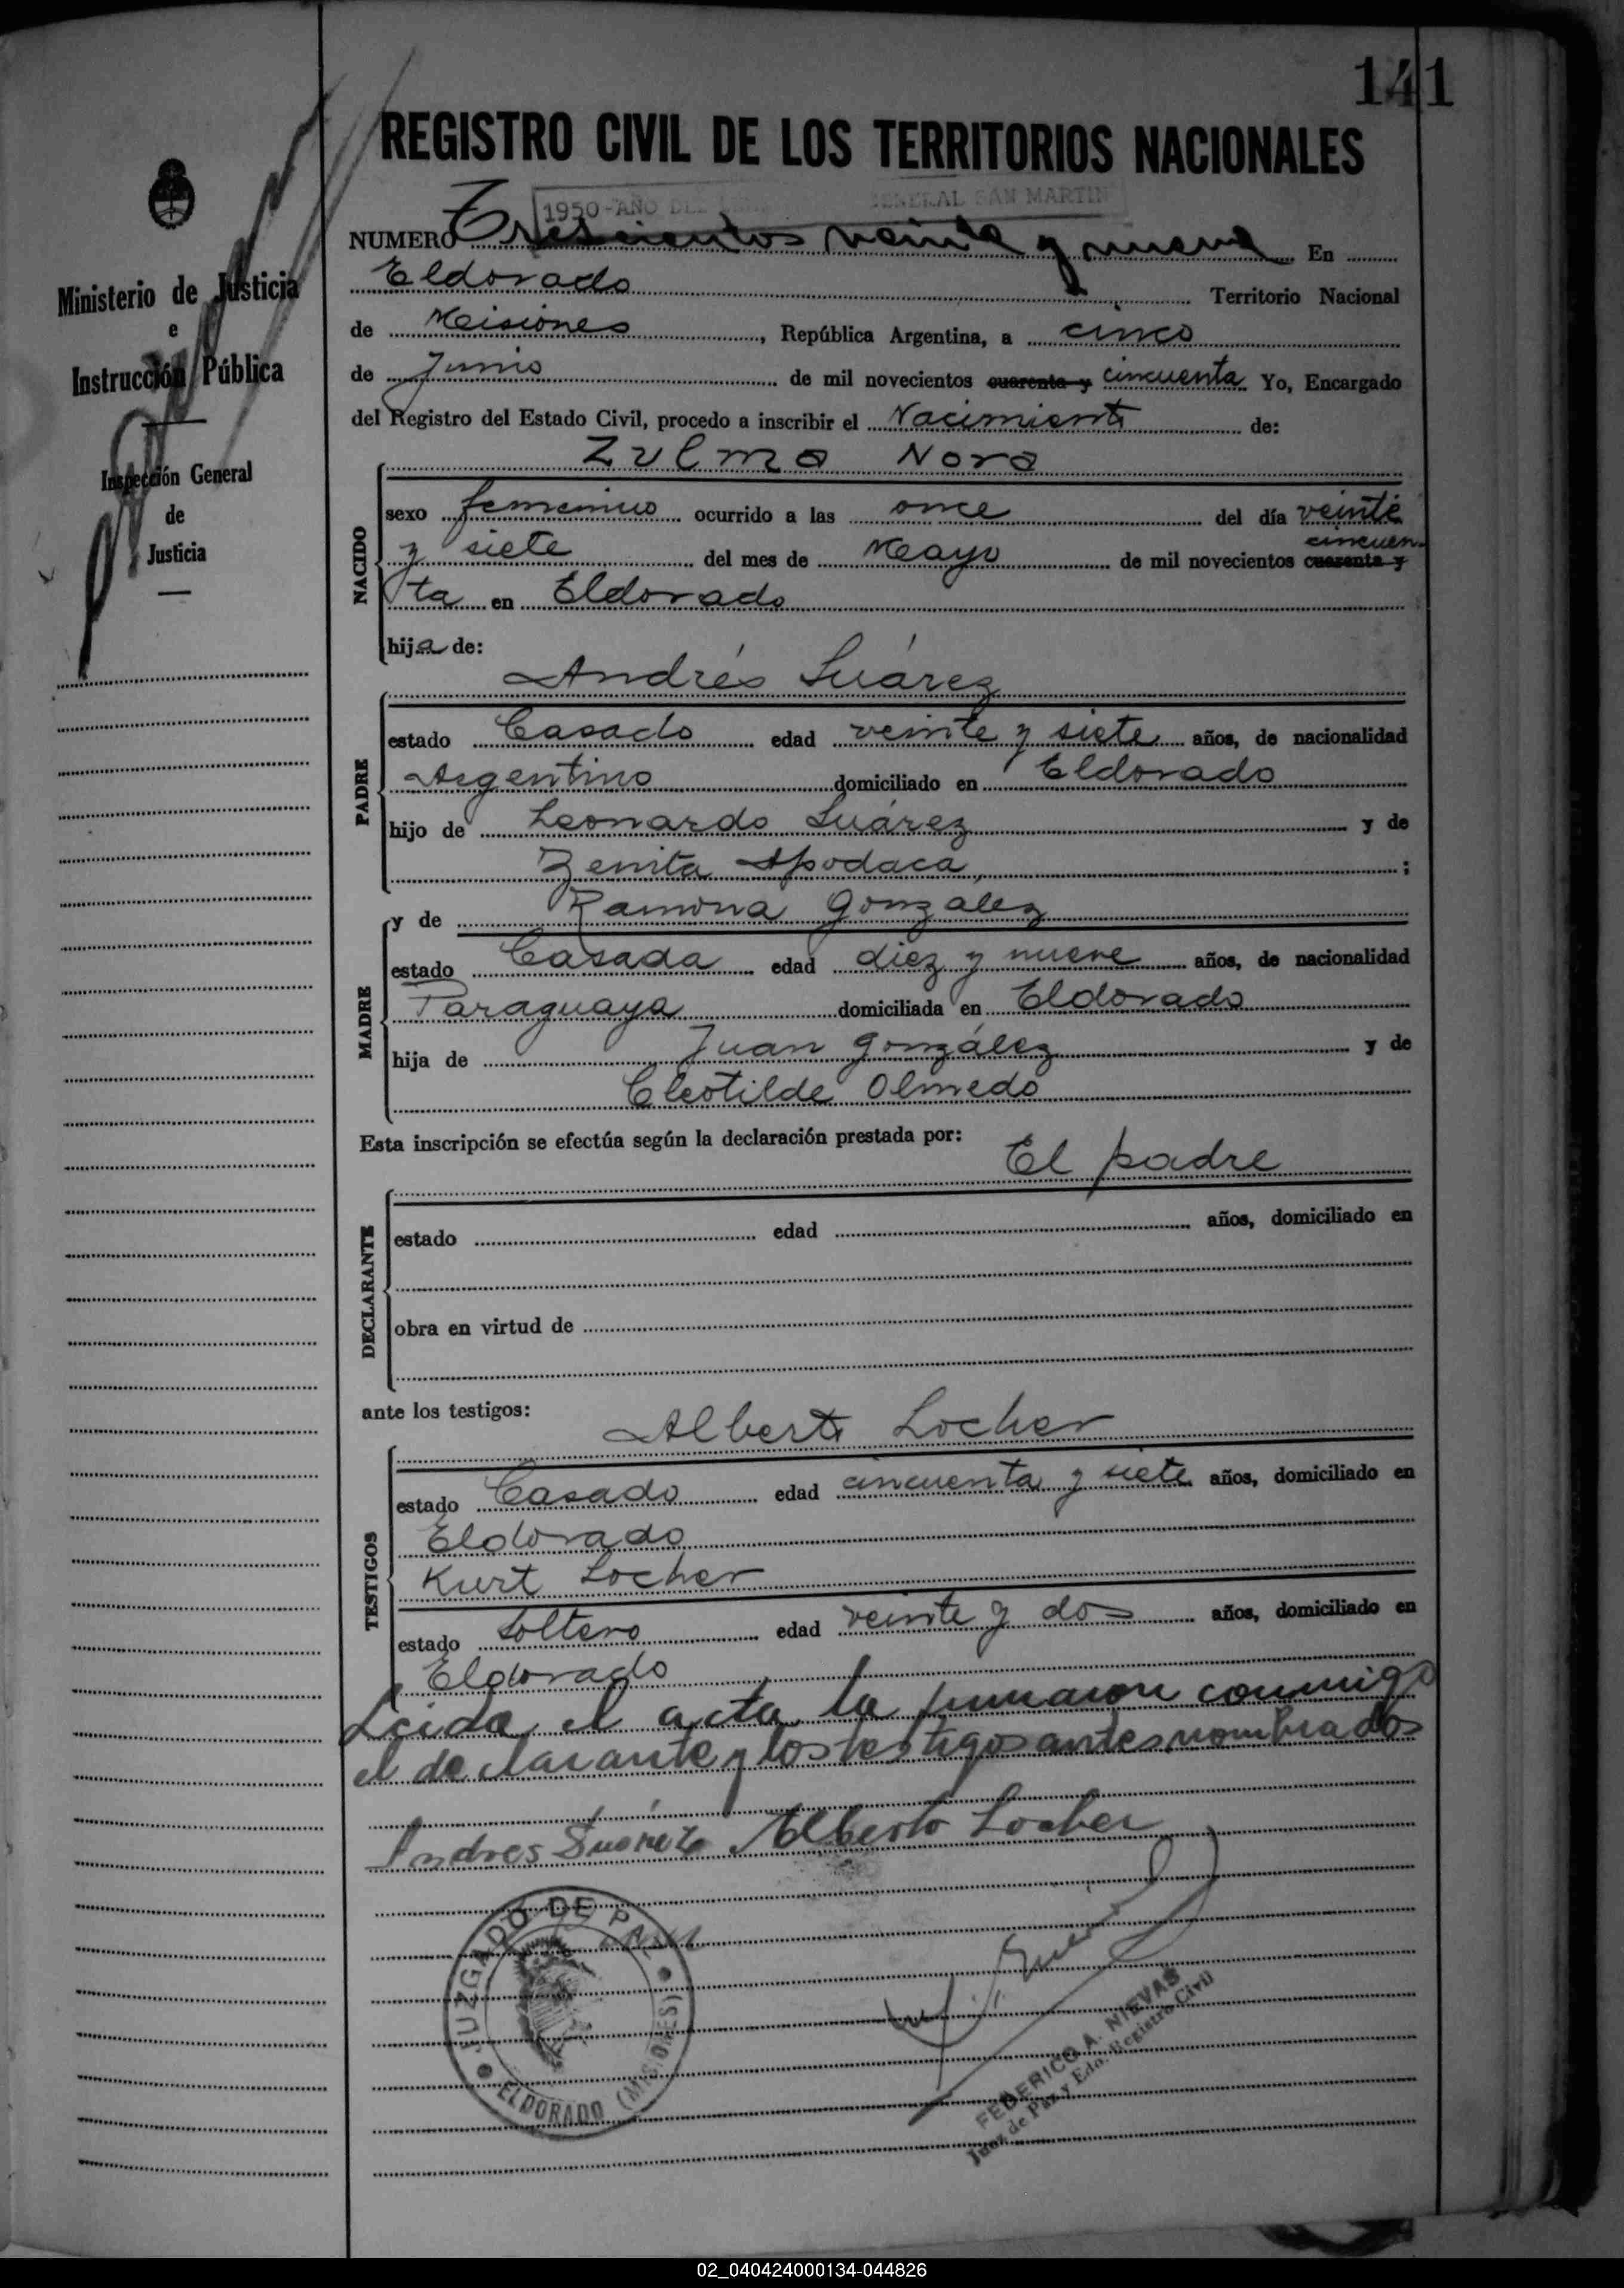 141
REGISTRO CIVIL DE LOS TERRITORIOS NACIONALES
1950-AÑO DEL GENERAL SAN MARTIN
NUMERO Trescientos veinte y nueve En
Eldorado Territorio Nacional
de Misiones, República Argentina, a cinco
de Junio de mil novecientos cuarenta y cincuenta Yo, Encargado
del Registro del Estado Civil, procedo a inscribir el Nacimiento de:
Zulma Nora
NACIDO
sexo femenino ocurrido a las once del día veinte
y siete del mes de Mayo de mil novecientos cuarenta y cincuen-
ta en Eldorado
hija de:
Andrés Suárez
PADRE
estado Casado edad veinte y siete años, de nacionalidad
Argentino domiciliado en Eldorado
hijo de Leonardo Suárez y de
Zenita Apodaca, ;
y de Ramona Gonzalez
MADRE
estado Casada edad diez y nueve años, de nacionalidad
Paraguaya domiciliada en Eldorado
hija de Juan González y de
Cleotilde Olmedo
Esta inscripción se efectúa según la declaración prestada por:
El padre
DECLARANTE
estado edad años, domiciliado en
obra en virtud de
ante los testigos:
Alberto Locher
TESTIGOS
estado Casado edad cincuenta y siete años, domiciliado en
Eldorado
Kurt Locher
estado Soltero edad veinte y dos años, domiciliado en
Eldorado
Leida el acta la firmaron conmigo
el declarante y los testigos antes nombrados
Andres Suárez Alberto Locher
JUZGADO DE PAZ
ELDORADO (MISIONES)
FEDERICO A. NIEVAS
Juez de Paz y Edo. Registro Civil
Ministerio de Justicia
e
Instrucción Pública
Inspección General
de
Justicia
02_040424000134-044826